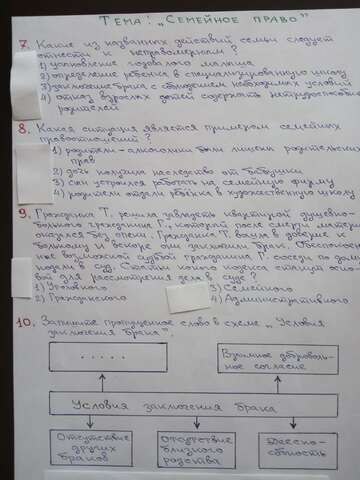 Тема: „Семейное право"
7. Какие из названных действий семьи следует
отнести к неправомерному?
1) усыновление годовалого малыша
2) определение ребенка в специализированную школу
3) заключение брака с соблюдением необходимых условий
4) отказ взрослых детей содержать нетрудоспособных
родителей
8. Какая ситуация является примером семейных
правоотношений?
1) родители-алкоголики были лишены родительских
прав
2) дочь получила наследство от бабушки
3) сын устроился работать на семейную фирму
4) родители отдали ребенка в художественную школу
9. Гражданка Т. решила завладеть квартирой душевно-
больного гражданина Г., который после смерти матери
оказался без опеки. Гражданка Т. вошла в доверие к
больному и вскоре они заключили брак. Обеспокоен-
ные возможной судьбой гражданина Г. соседи по дому
подали в суд. Статьи какого кодекса станут осно-
вой для рассмотрения дела в суде?
1) Уголовного
3) Семейного
2) Гражданского
4) Административного
10. Запишите пропущенное слово в схеме „Условия
заключения брака".
. . . . .
Взаимное доброволь-
ное согласие
Условия заключения брака
Отсутствие
других
браков
Отсутствие
близкого
родства
Дееспо-
собность